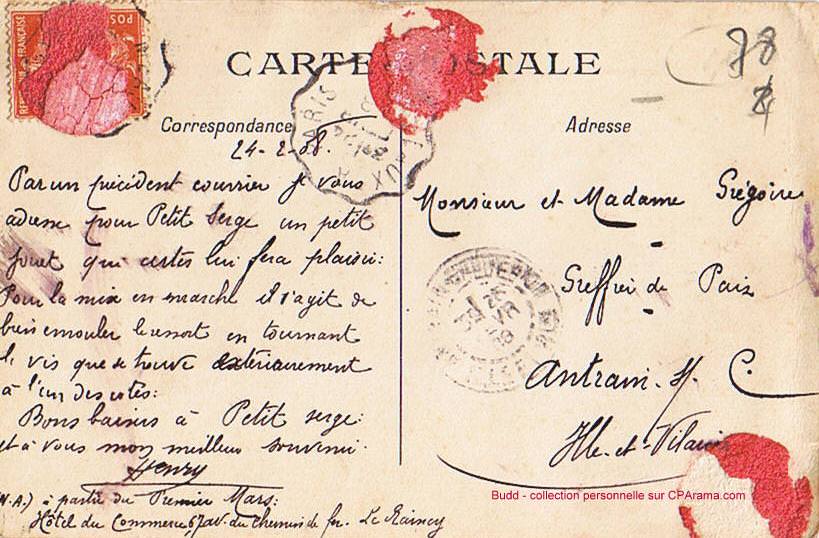 CARTE POSTALE
Correspondance
24-2-08.
Par un précédent courrier je vous
adresse pour Petit Serge un petit
jouet qui certes lui fera plaisir:
Pour la mise en marche il s'agit de
bien enrouler le ressort en tournant
la vis que se trouve extérieurement
à l'un des cotés:
Bons baisers à Petit Serge:
et à vous mon meilleur souvenir.
Henry
(N.A.) à partir du Premier Mars:
Hôtel du Commerce 67 av. du Chemin de fer. Le Raincy
Adresse
Monsieur et Madame Grégoire
Greffier de Paix
Antrain. s/ C.
Ille-et-Vilaine
78
PARIS
Budd - collection personnelle sur CPArama.com